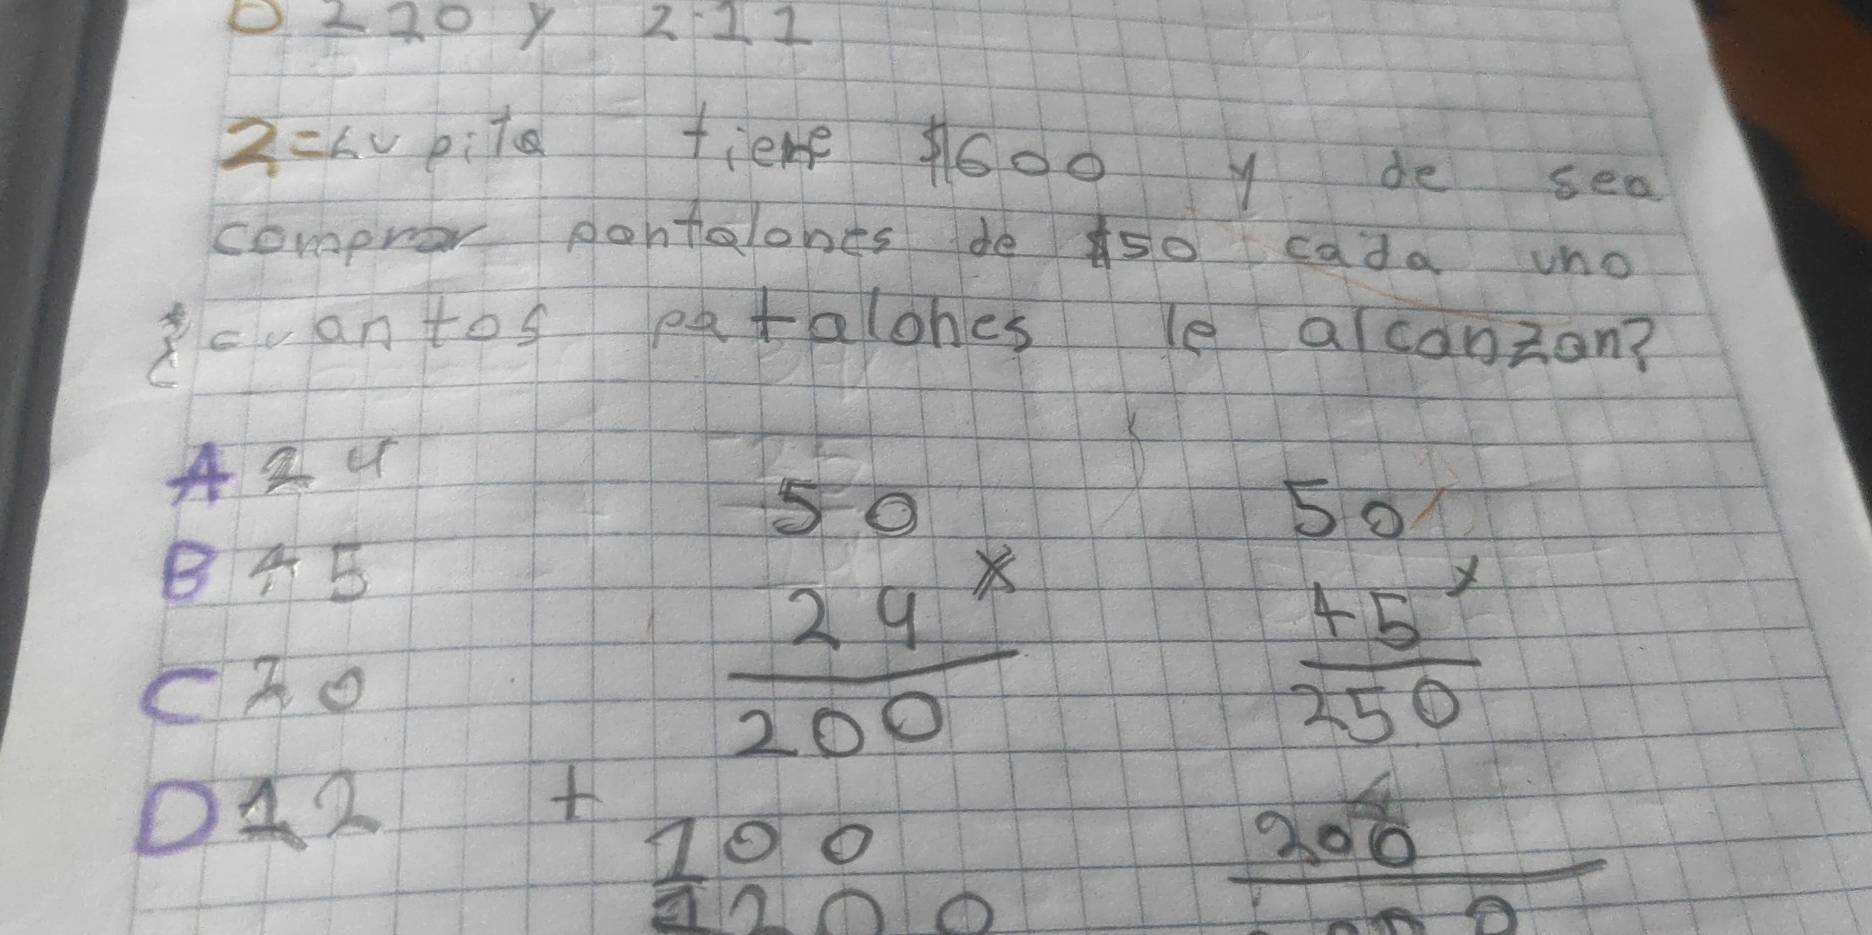 D 220 y 211
2=Lupita tiene $600 y de sea
comprar pantalones de $50 cada uno
¿cuantos patalones le alcanzan?
A 24
B 45
C 20
D 12
50
24 x
200
+ 100
1200
50
45 x
250
200